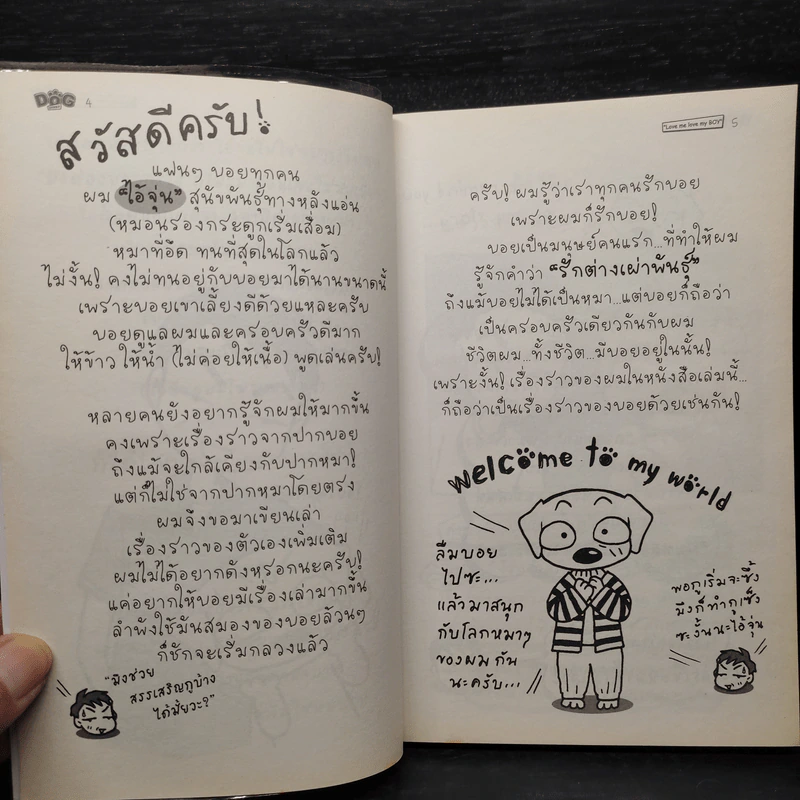 DOG 4
สวัสดีครับ!
แฟนๆ บอยทุกคน
ผม “ไอ้จุ่น” สุนัขพันธุ์ทางหลังแอ่น
(หมอนรองกระดูกเริ่มเสื่อม)
หมาที่อึด ทนที่สุดในโลกแล้ว
ไม่งั้น! คงไม่ทนอยู่กับบอยมาได้นานขนาดนี้
เพราะบอยเขาเลี้ยงดีด้วยแหละครับ
บอยดูแลผมและครอบครัวดีมาก
ให้ข้าว ให้น้ำ (ไม่ค่อยให้เนื้อ) พูดเล่นครับ!
หลายคนยังอยากรู้จักผมให้มากขึ้น
คงเพราะเรื่องราวจากปากบอย
ถึงแม้จะใกล้เคียงกับปากหมา!
แต่ก็ไม่ใช่จากปากหมาโดยตรง
ผมจึงขอมาเขียนเล่า
เรื่องราวของตัวเองเพิ่มเติม
ผมไม่ได้อยากดังหรอกนะครับ!
แค่อยากให้บอยมีเรื่องเล่ามากขึ้น
ลำพังใช้มันสมองของบอยล้วนๆ
ก็ชักจะเริ่มกลวงแล้ว
“มึงช่วย
สรรเสริญกูบ้าง
ได้มั้ยวะ?”
"Love me love my BOY" 5
ครับ! ผมรู้ว่าเราทุกคนรักบอย
เพราะผมก็รักบอย!
บอยเป็นมนุษย์คนแรก...ที่ทำให้ผม
รู้จักคำว่า “รักต่างเผ่าพันธุ์”
ถึงแม้บอยไม่ได้เป็นหมา...แต่บอยก็ถือว่า
เป็นครอบครัวเดียวกันกับผม
ชีวิตผม...ทั้งชีวิต...มีบอยอยู่ในนั้น!
เพราะงั้น! เรื่องราวของผมในหนังสือเล่มนี้...
ก็ถือว่าเป็นเรื่องราวของบอยด้วยเช่นกัน!
welcome to my world
ลืมบอย
ไปซะ...
แล้วมาสนุก
กับโลกหมาๆ
ของผมกัน
นะครับ...
พอกูเริ่มจะซึ้ง
มึงก็ทำกูเซ็ง
ซะงั้นนะไอ้จุ่น